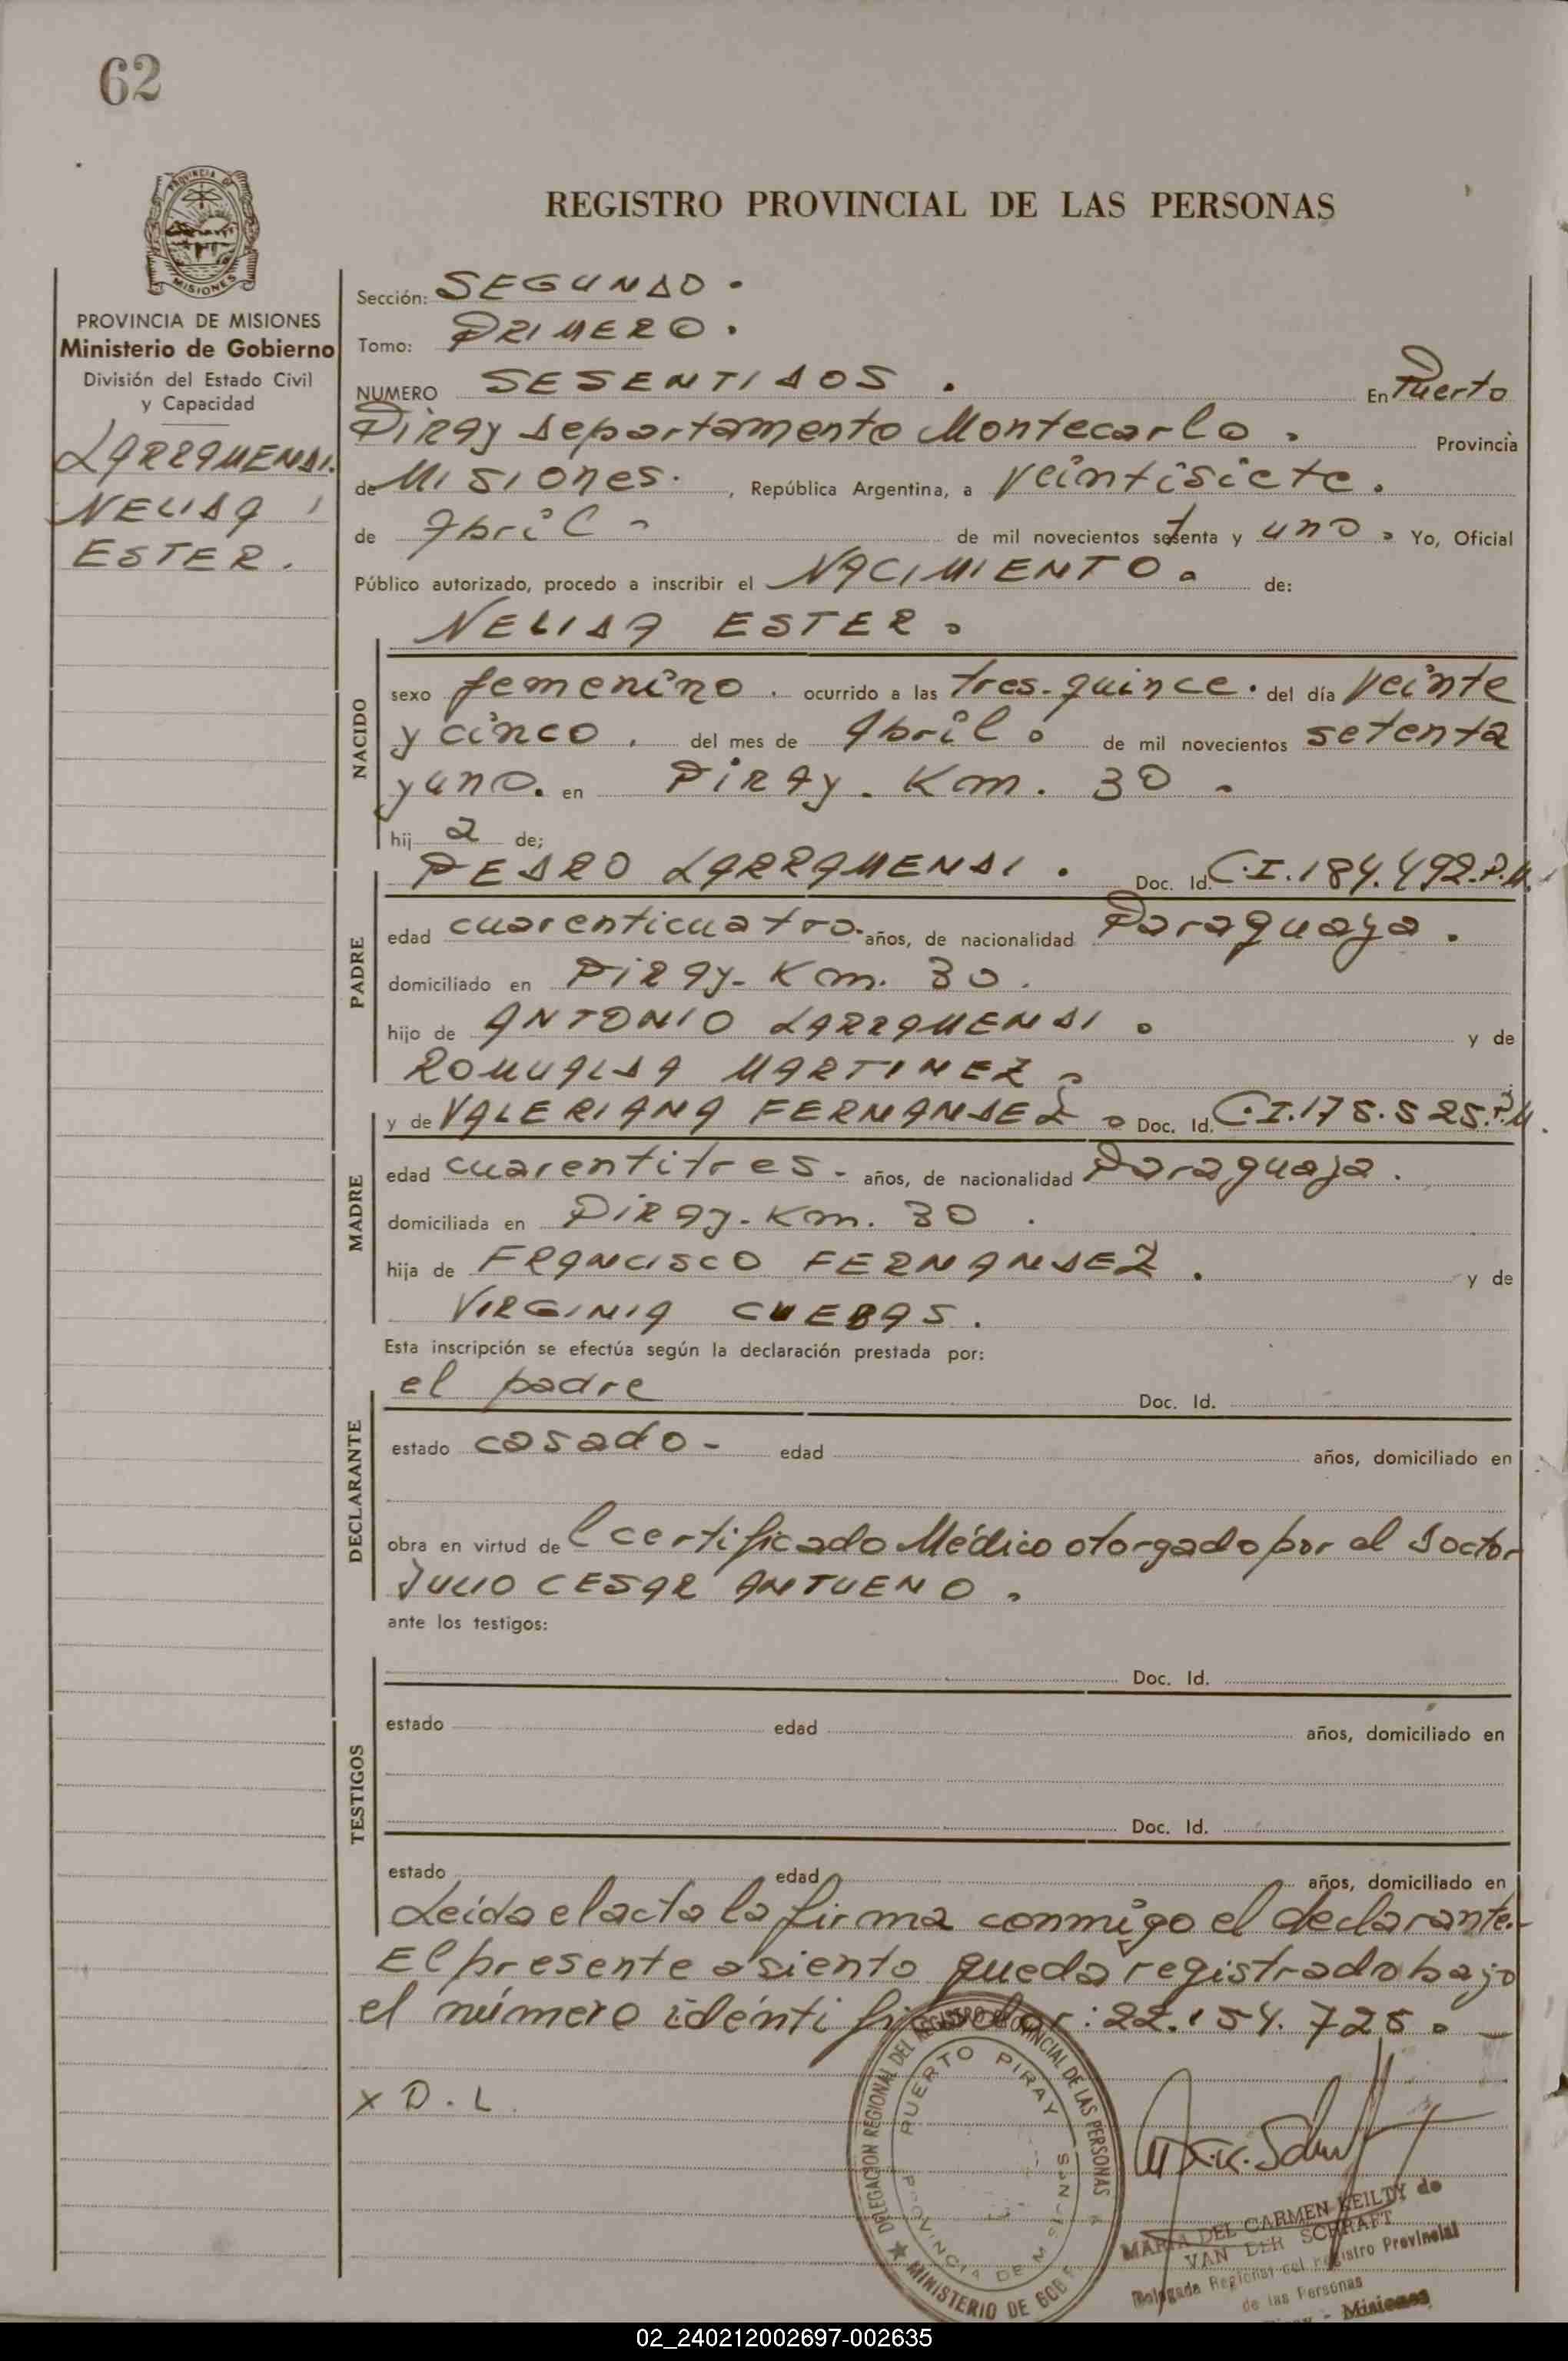 62
REGISTRO PROVINCIAL DE LAS PERSONAS
PROVINCIA DE
MISIONES
PROVINCIA DE MISIONES
Ministerio de Gobierno
División del Estado Civil
y Capacidad
LARRAMENDI.
NELIDA
ESTER.
Sección: SEGUNDO.
Tomo: PRIMERO.
NUMERO SESENTIDOS. En Puerto
Piray departamento Montecarlo. Provincia
de Misiones. , República Argentina, a veintisiete.
de Abril - de mil novecientos setenta y uno. Yo, Oficial
Público autorizado, procedo a inscribir el NACIMIENTO. de:
NELIDA ESTER.
NACIDO
sexo femenino. ocurrido a las tres-quince. del día veinte
y cinco. del mes de Abril. de mil novecientos setenta
y uno. en Piray. Km. 30.
hij a de;
PEDRO LARRAMENDI. Doc. Id. C.I.184.492.P.M.
PADRE
edad cuarenticuatro. años, de nacionalidad Paraguaya.
domiciliado en Piray-Km. 30.
hijo de ANTONIO LARRAMENDI. y de
ROMUALDA MARTINEZ.
y de VALERIANA FERNANDEZ. Doc. Id. C.I.175.525.P.M.
MADRE
edad cuarentitres. años, de nacionalidad Paraguaya.
domiciliada en Piray-Km. 30.
hija de FRANCISCO FERNANDEZ. y de
VIRGINIA CUEBAS.
Esta inscripción se efectúa según la declaración prestada por:
el padre Doc. Id.
DECLARANTE
estado casado- edad años, domiciliado en
obra en virtud de l certificado Médico otorgado por el doctor
JULIO CESAR ANTUENO.
ante los testigos:
Doc. Id.
TESTIGOS
estado edad años, domiciliado en
Doc. Id.
estado edad años, domiciliado en
Leída el acta la firma conmigo el declarante.-
El presente asiento queda registrado bajo
el número identificador: 22.154.725. -
X D. L
DELEGACION REGIONAL DEL REGISTRO PROVINCIAL DE LAS PERSONAS
PUERTO PIRAY
PROVINCIA DE MISIONES
MINISTERIO DE GOB
MARIA DEL CARMEN KEILTY de
VAN DER SCHRAFT
Delegada Regional del registro Provincial
de las Personas
- Misiones
02_240212002697-002635